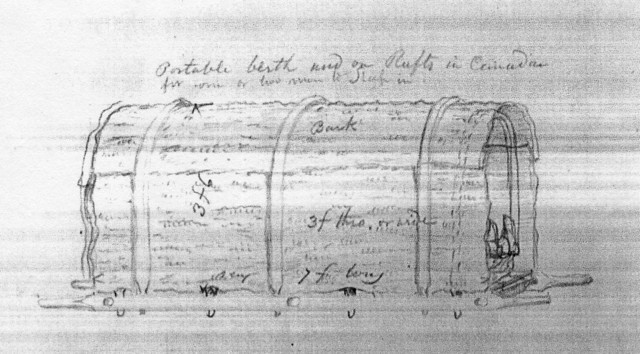 Portable berth used on Rafts in Canada
for one or two men to Sleep in
Bark
3f6
3f thro. or wide
7 f. long